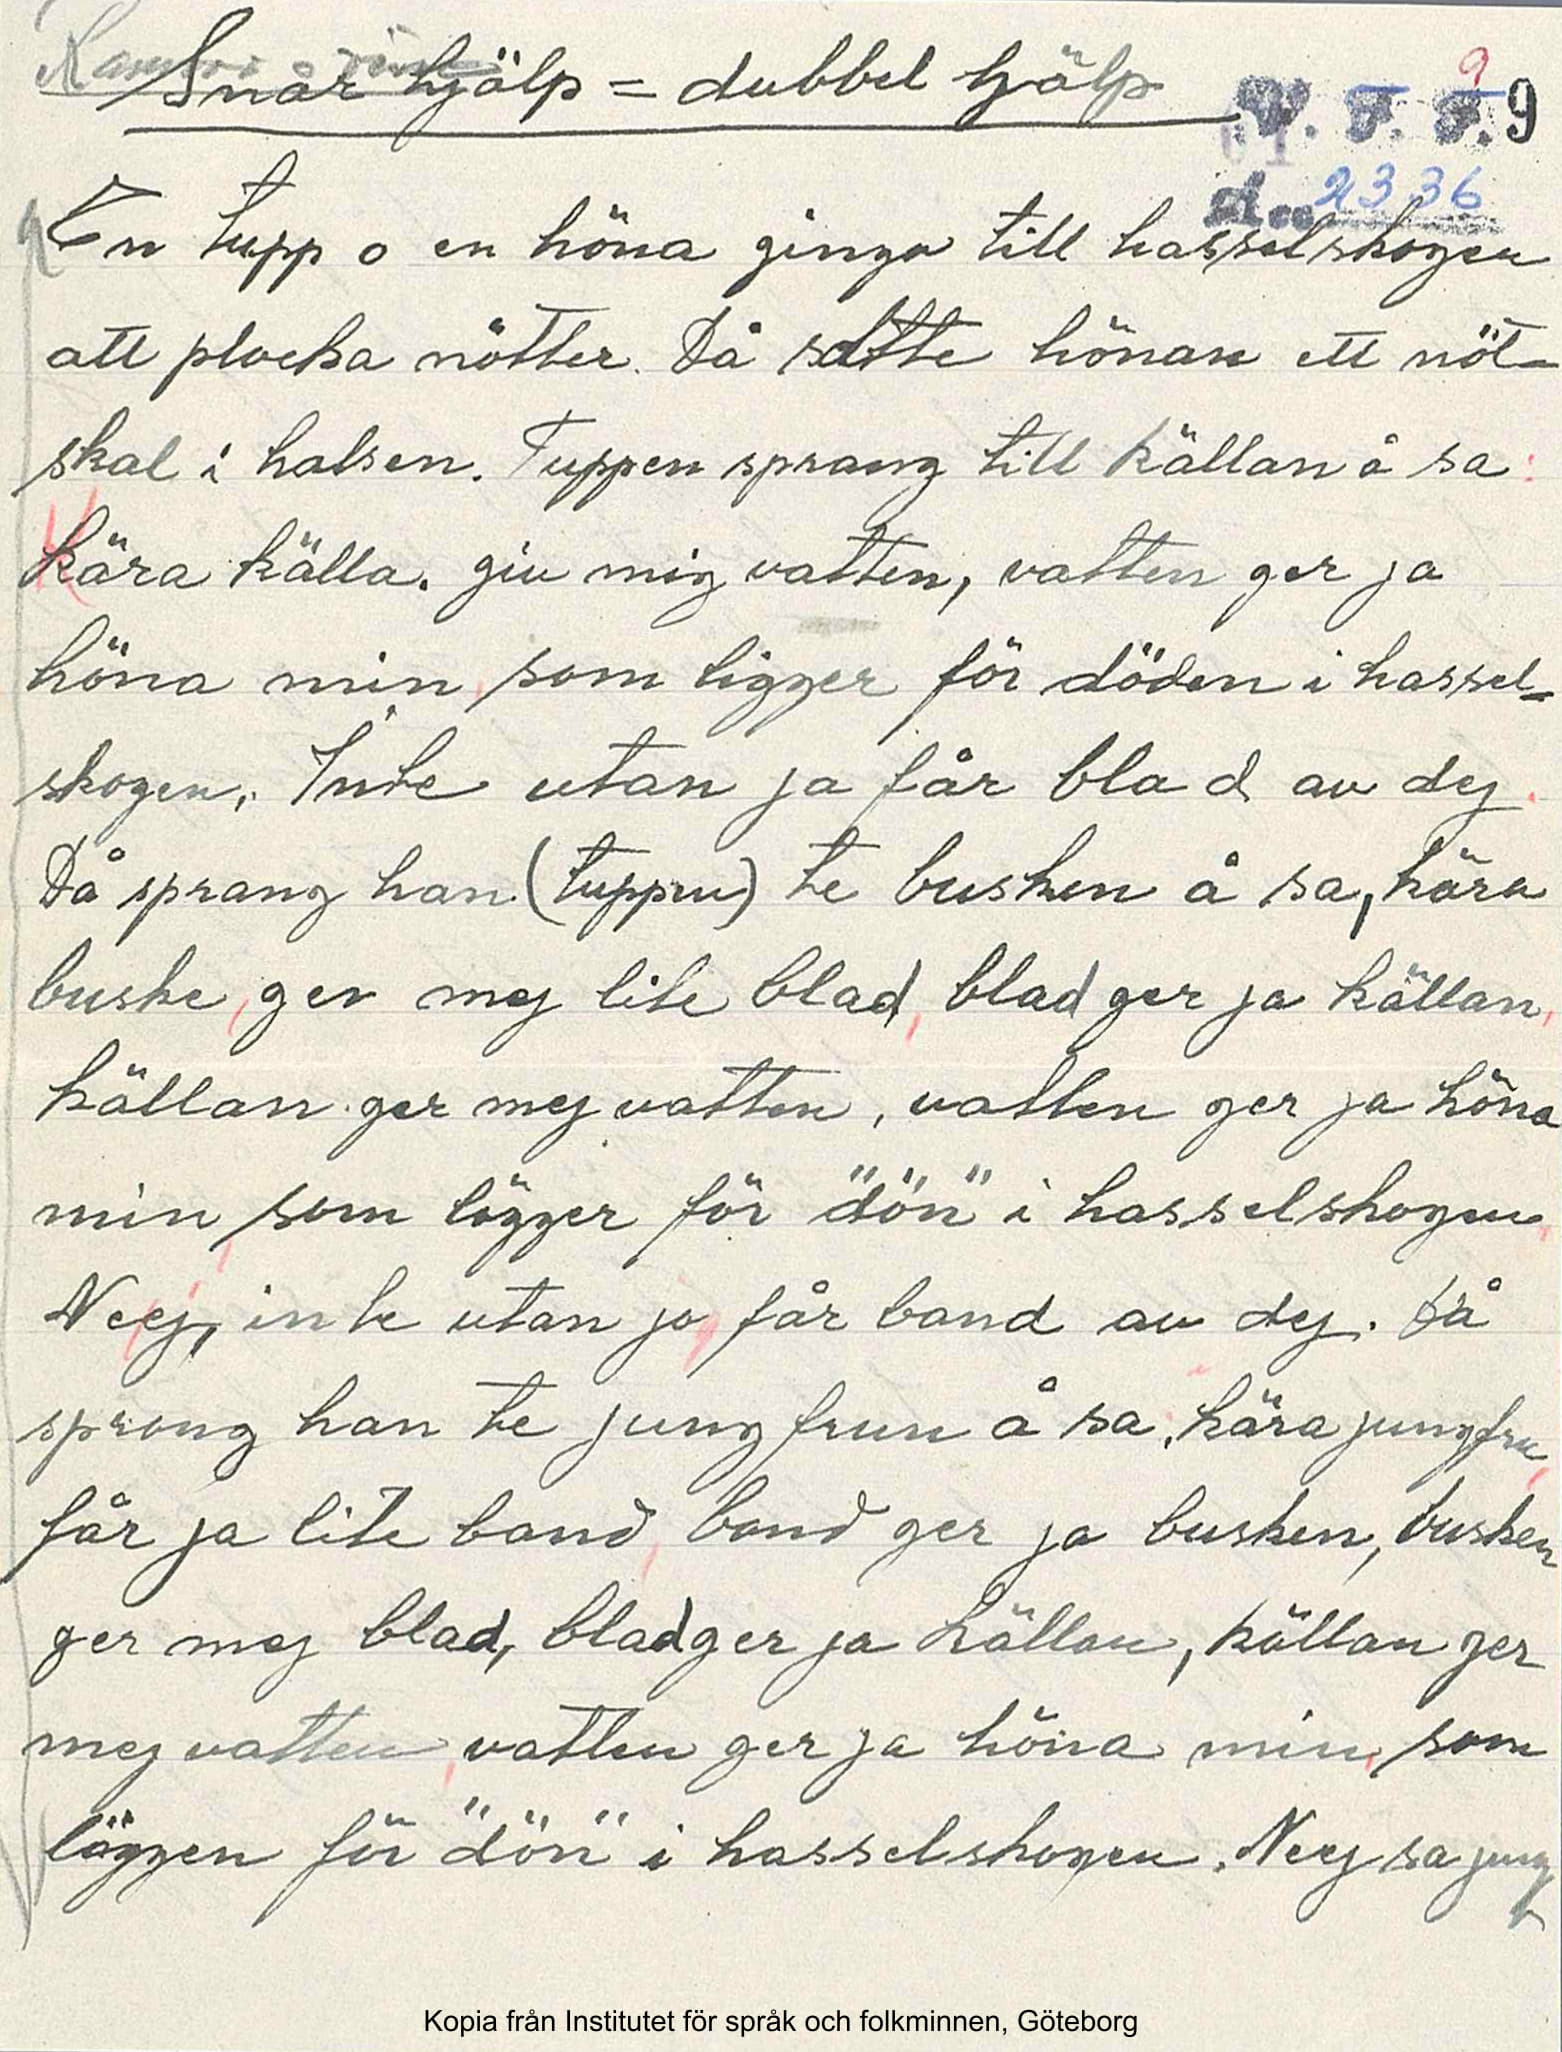 Snar hjälp = dubbel hjälp
9
V. F. F. 9
acc 2336
En tupp o en höna gingo till hasselskogen
att plocka nötter. Då satte hönan ett nöt-
skal i halsen. Tuppen sprang till källan å sa:
kära källa. giv mig vatten, vatten ger ja
höna min, som ligger för döden i hassel-
skogen. Inte utan ja får blad av dej.
Då sprang han (tuppen) te busken å sa, kära
buske, ger mej lite blad, blad ger ja källan,
källan ger mej vatten, vatten ger ja höna
min, som lögger för "dön" i hasselskogen.
Neej, inte utan ja får band av dej. Då
sprang han te jungfrun å sa, kära jungfru,
får ja lite band, band ger ja busken, busken
ger mej blad, blad ger ja källan, källan ger
mej vatten, vatten ger ja höna min, som
löggen för "dön" i hasselskogen. Neej sa jung
Kopia från Institutet för språk och folkminnen, Göteborg